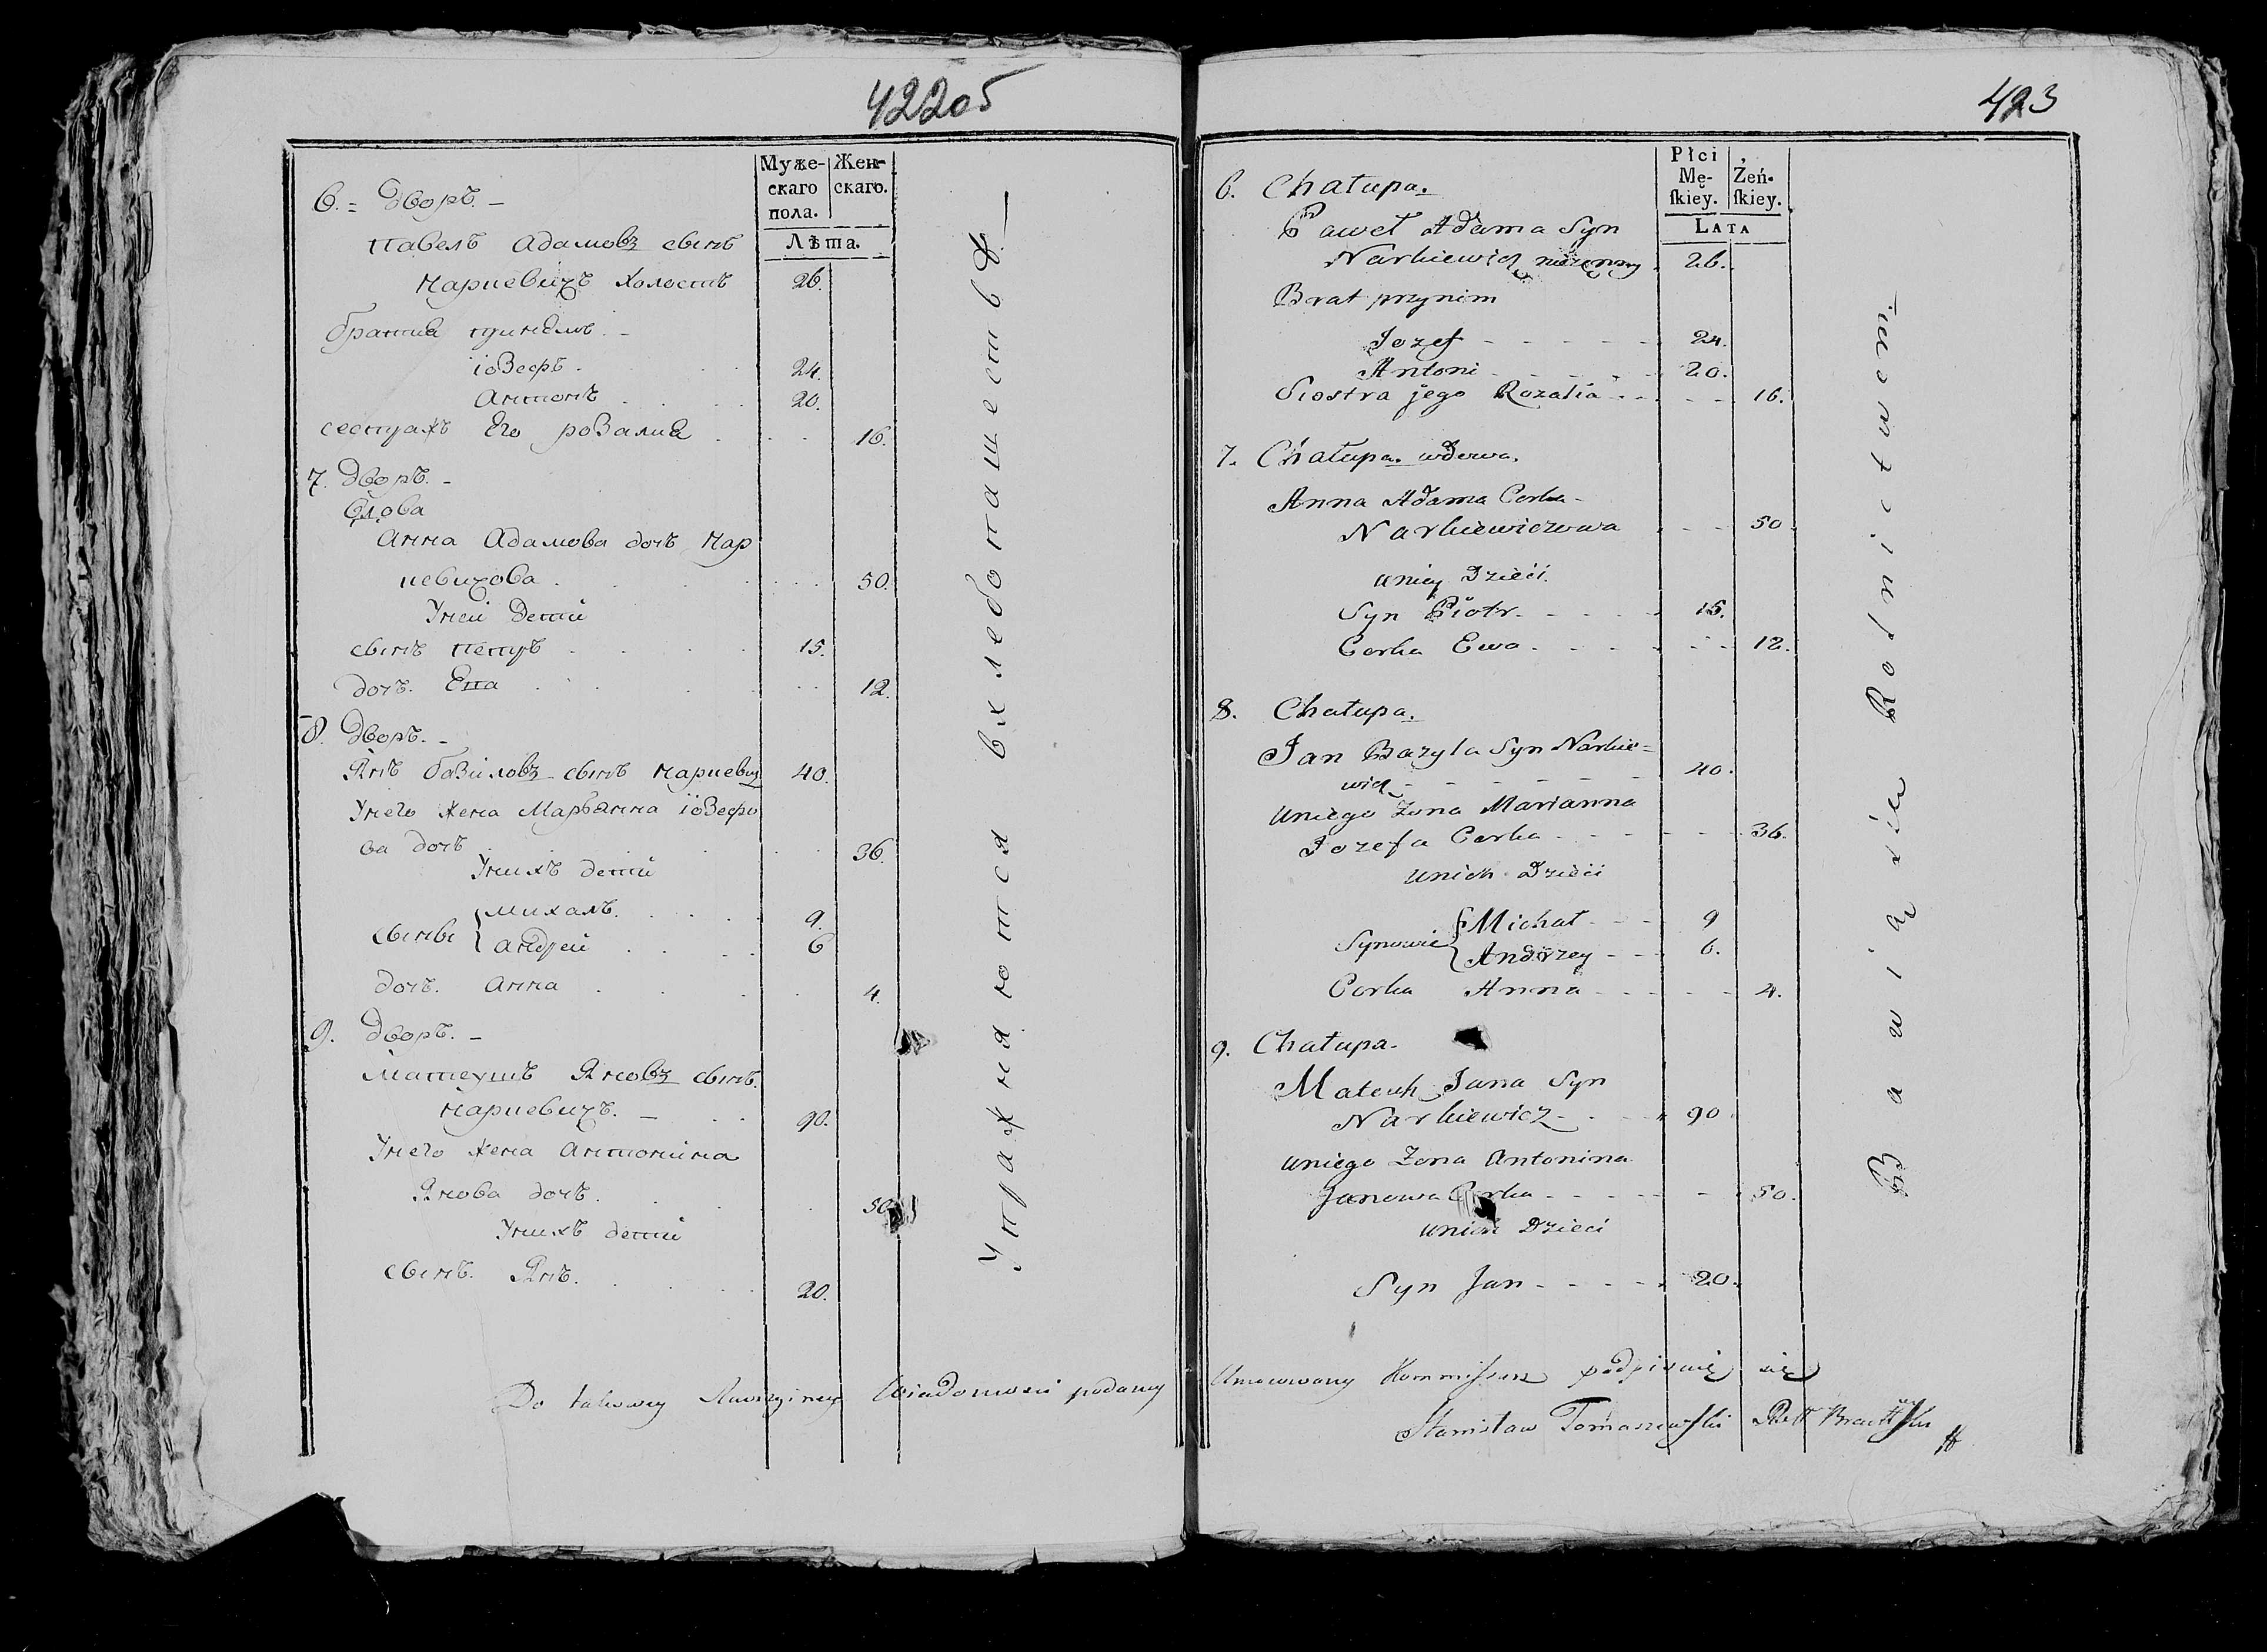 422об
Муже-
скаго
пола.
Жен-
скаго.
Лѣта.
6. = Дворъ. -
Павелъ Адамовъ сынъ
Наркевичъ холостъ 26.
братия при нёмъ. -
іозефъ. 24.
Антонъ 20.
сестра Его розалия 16.
7. Дворъ. -
Вдова
Анна Адамова дочъ Нар
кевичова 50.
У ней Дети
сынъ петръ 15.
дочъ. Ева 12.
8. Дворъ. -
Янъ базиловъ сынъ Наркевич 40.
У него жена Марьянна іозефо
ва дочъ 36.
У нихъ дети
сыны { михалъ. 9.
андрей 6
дочъ. Анна 4.
9. Дворъ. -
Матеушъ Яновъ сынъ.
Наркевичъ. - 90.
У него жена Антонина
Янова дочъ. 50.
У нихъ дети
сынъ. Янъ. 20.
Упражняются в хлебопашестве. -
Do takowey Rewizyiney Wiadomosci podaney
423
Płci
Mę-
ſkiey.
Żeń-
ſkiey.
LATA
6. Chałupa.
Paweł Adama Syn
Narkiewicz nieżenny 26.
Brat przynim
Jozef - - - - - 24.
Antoni - - - - - 20.
Siostra jego Rozalia - - - - 16.
7. Chałupa. wdowa.
Anna Adama Corka -
Narkiewiczowa - - 50.
uniey Dzieci.
Syn Piotr - - - - - 15.
Corka Ewa - - - - - - 12.
8. Chałupa.
Jan Bazyla Syn Narkie=
wicz - - - - - - 40.
uniego Żona Marianna
Jozefa Corka - - - - - - 36.
unich Dzieci
Synowie { Michał - - - 9
Andrzey - - - 6.
Corka Anna - - - - - 4.
9. Chałupa.
Mateuß Jana Syn
Narkiewicz - - - 90
uniego Żona Antonina
Janowa Corka - - - - - - 50.
unich Dzieci
Syn Jan - - - - - 20.
Bawią się Rolnictwem. -
Umocowany Kommiſsarz podpisuię się
Stanisław Tomaszewſki